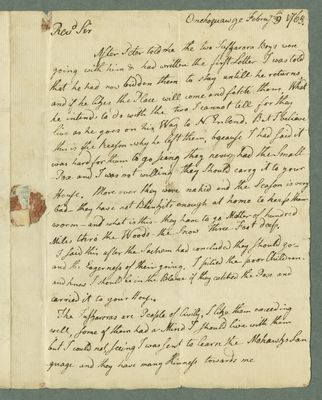 Onohoquawge Febry 9 1764
Revd Sir
After Peter told me the two Tuskarora Boys were
going with him & had written the first Letter I was told
that he had now bidden them to stay untill he returns
and if he likes the Place will come and fetch them, What
he intends to do with the two I cannot tell for they
live as he goes on his Way to N. Enland. But I believe
this is the Reason why he left them, because I had said it
was hard for them to go seing they never had the Small
Pox and I was not willing they should carry it to your
House. More over they were nakid and the Season is very
bad, they have not Blankits enough at home to keep them
worm — and what is this they have to go Matter of hundred
Miles thro the Woods the Snow three Feet deep.
I said this after the Sachem had concluded they should go —
and the Eagerness of their going. I pitied the poor Children.
and knew I should be in the Blame if they catched the Pox and
carried it to your House.
The Tuskaroras are People of Civilty, I like them exceeding
well, Some of them had a Mind I should live with them
but I could not seeing I was sent to learn the Mahawks Lan
guage and they have many Kinness towards me